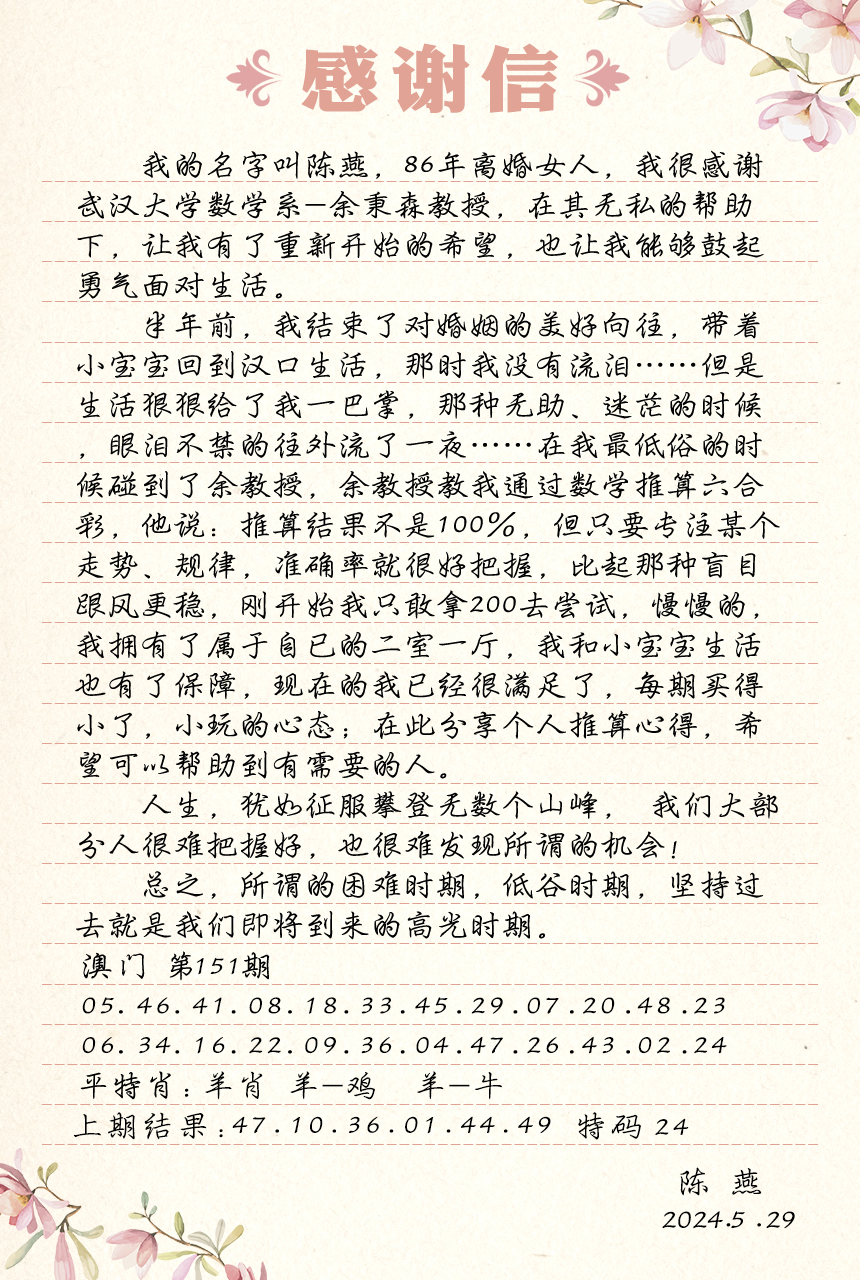 感谢信
我的名字叫陈燕，86年离婚女人，我很感谢
武汉大学数学系—余秉森教授，在其无私的帮助
下，让我有了重新开始的希望，也让我能够鼓起
勇气面对生活。
半年前，我结束了对婚姻的美好向往，带着
小宝宝回到汉口生活，那时我没有流泪……但是
生活狠狠给了我一巴掌，那种无助、迷茫的时候
，眼泪不禁的往外流了一夜……在我最低俗的时
候碰到了余教授，余教授教我通过数学推算六合
彩，他说：推算结果不是100%，但只要专注某个
走势、规律，准确率就很好把握，比起那种盲目
跟风更稳，刚开始我只敢拿200去尝试，慢慢的，
我拥有了属于自已的二室一厅，我和小宝宝生活
也有了保障，现在的我已经很满足了，每期买得
小了，小玩的心态；在此分享个人推算心得，希
望可以帮助到有需要的人。
人生，犹如征服攀登无数个山峰， 我们大部
分人很难把握好，也很难发现所谓的机会！
总之，所谓的困难时期，低谷时期，坚持过
去就是我们即将到来的高光时期。
澳门 第151期
05.46.41.08.18.33.45.29.07.20.48.23
06.34.16.22.09.36.04.47.26.43.02.24
平特肖：羊肖 羊—鸡 羊—牛
上期结果：47.10.36.01.44.49 特码 24
陈 燕
2024.5.29